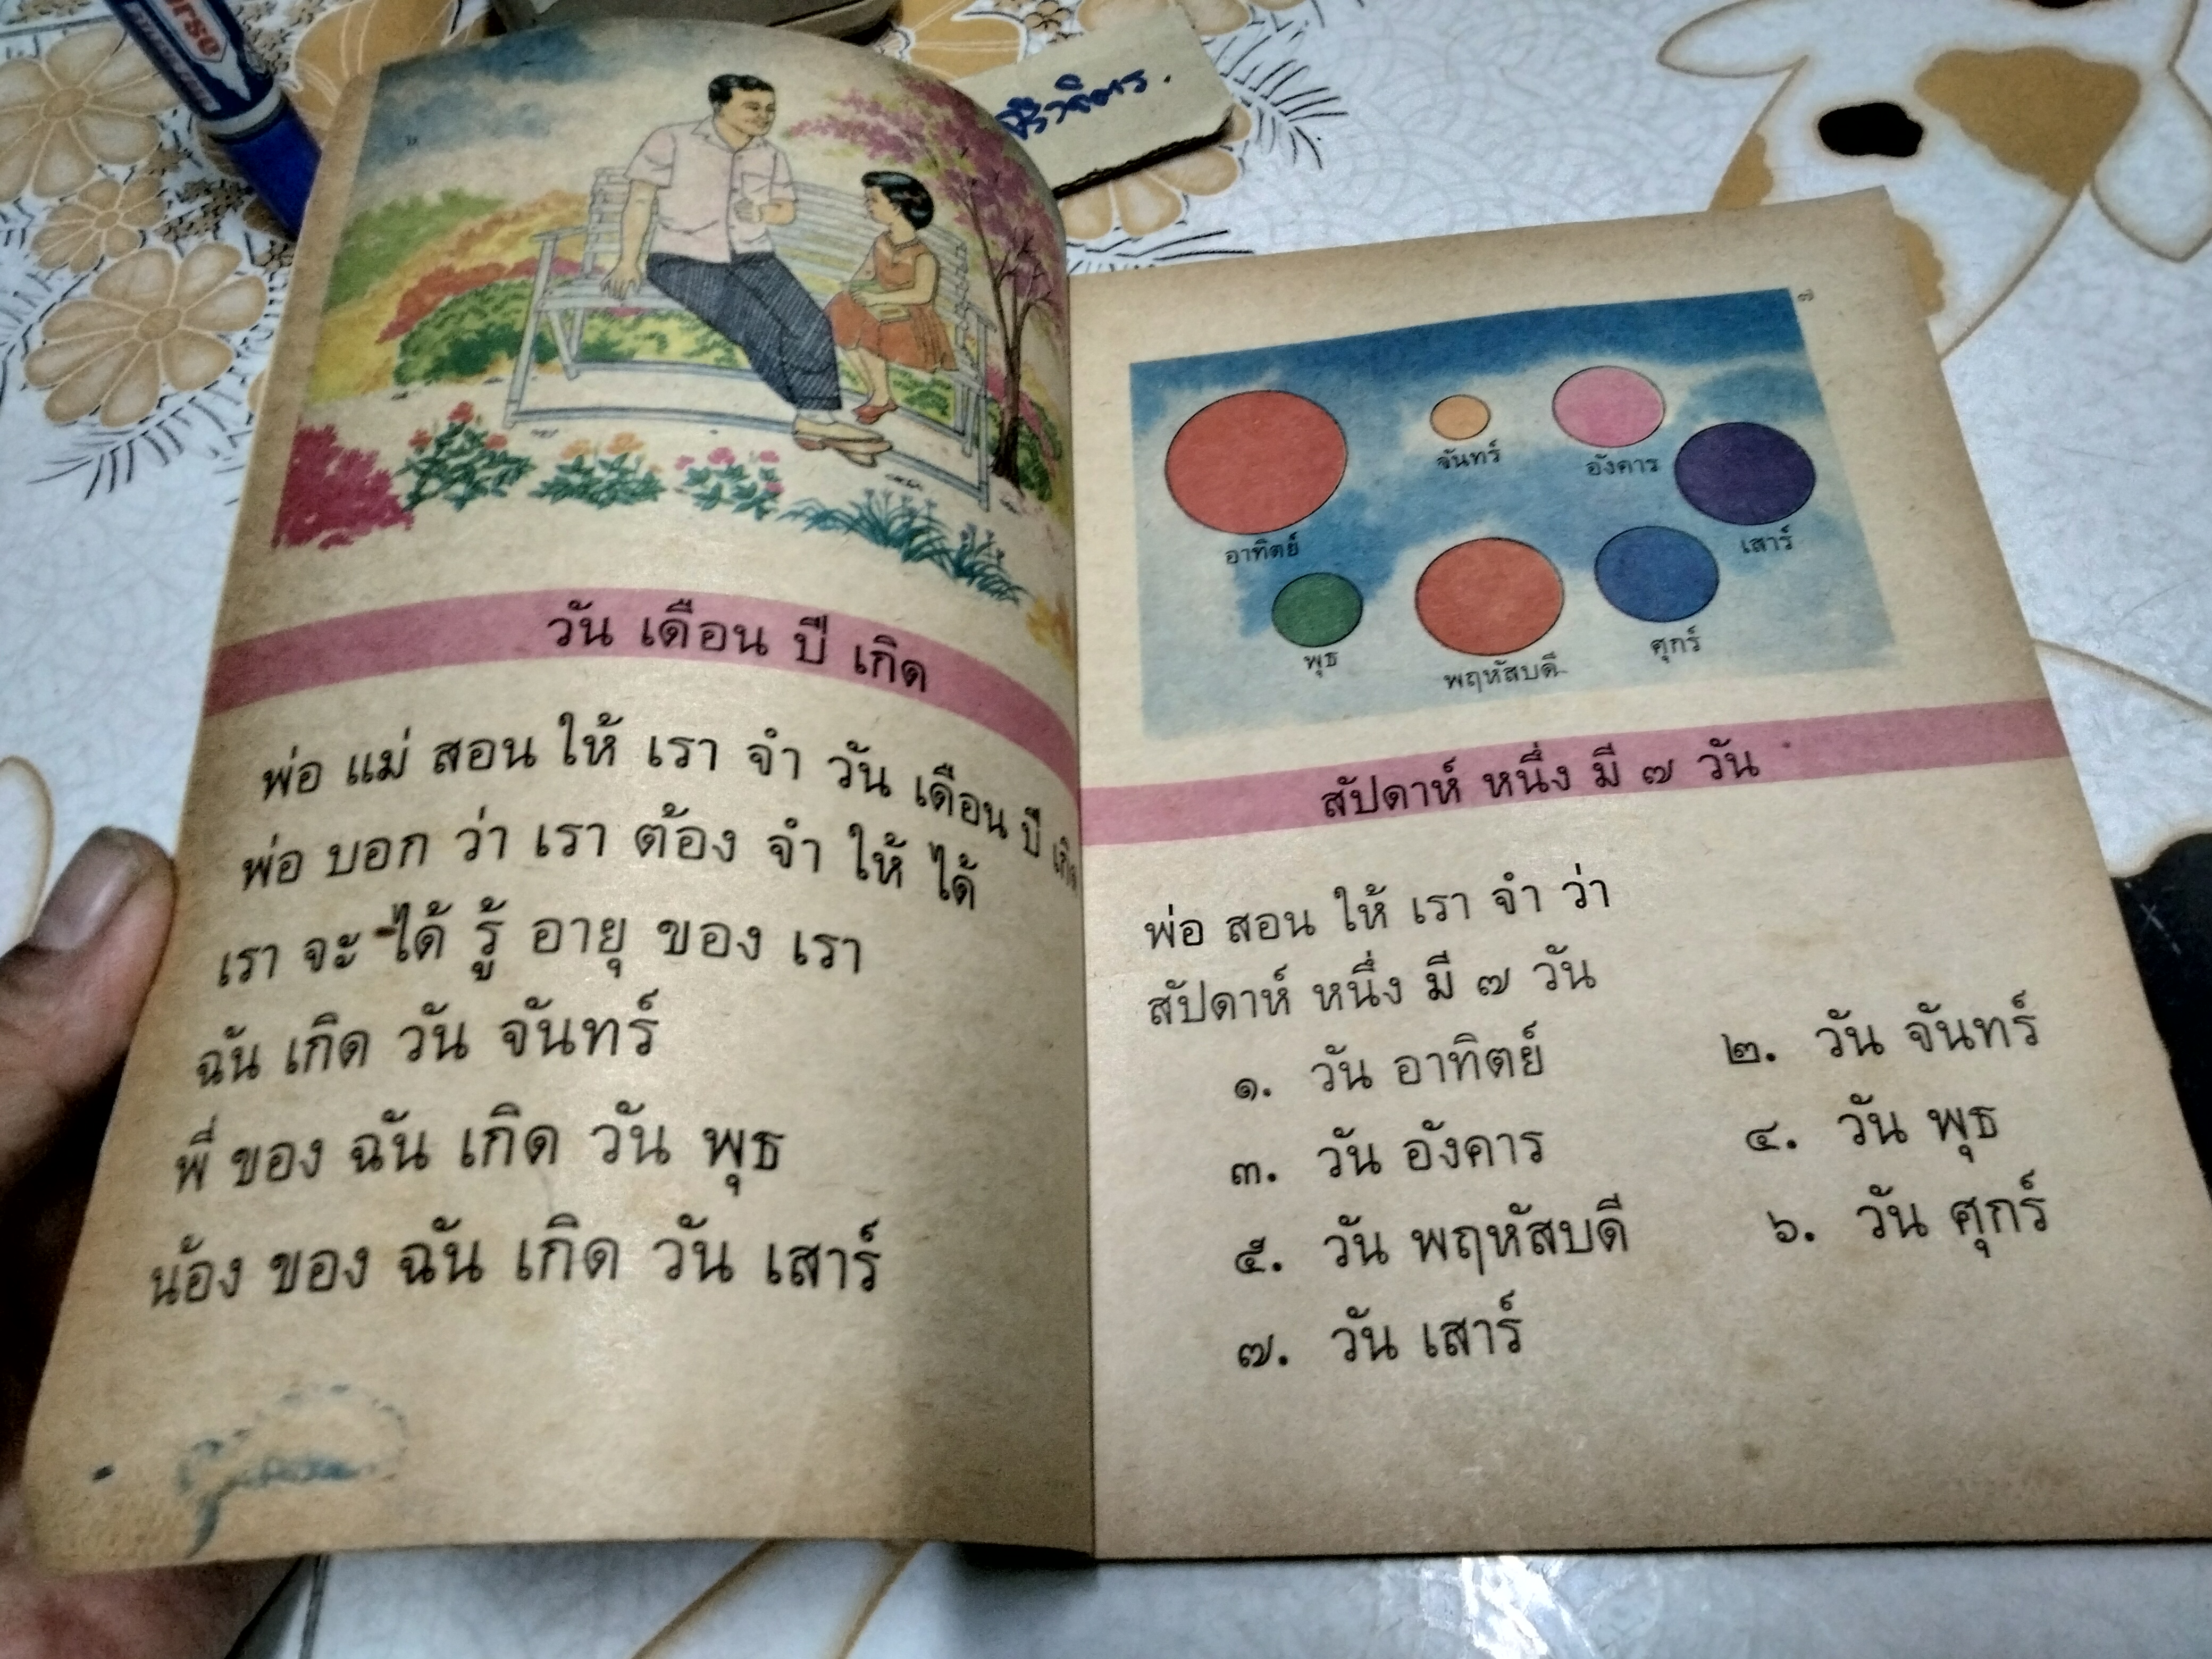 วัน เดือน ปี เกิด
พ่อ แม่ สอน ให้ เรา จำ วัน เดือน ปี เกิด
พ่อ บอก ว่า เรา ต้อง จำ ให้ ได้
เรา จะ ได้ รู้ อายุ ของ เรา
ฉัน เกิด วัน จันทร์
พี่ ของ ฉัน เกิด วัน พุธ
น้อง ของ ฉัน เกิด วัน เสาร์
๗
จันทร์
อังคาร
อาทิตย์
เสาร์
พุธ
พฤหัสบดี
ศุกร์
สัปดาห์ หนึ่ง มี ๗ วัน
พ่อ สอน ให้ เรา จำ ว่า
สัปดาห์ หนึ่ง มี ๗ วัน
๑. วัน อาทิตย์ ๒. วัน จันทร์
๓. วัน อังคาร ๔. วัน พุธ
๕. วัน พฤหัสบดี ๖. วัน ศุกร์
๗. วัน เสาร์